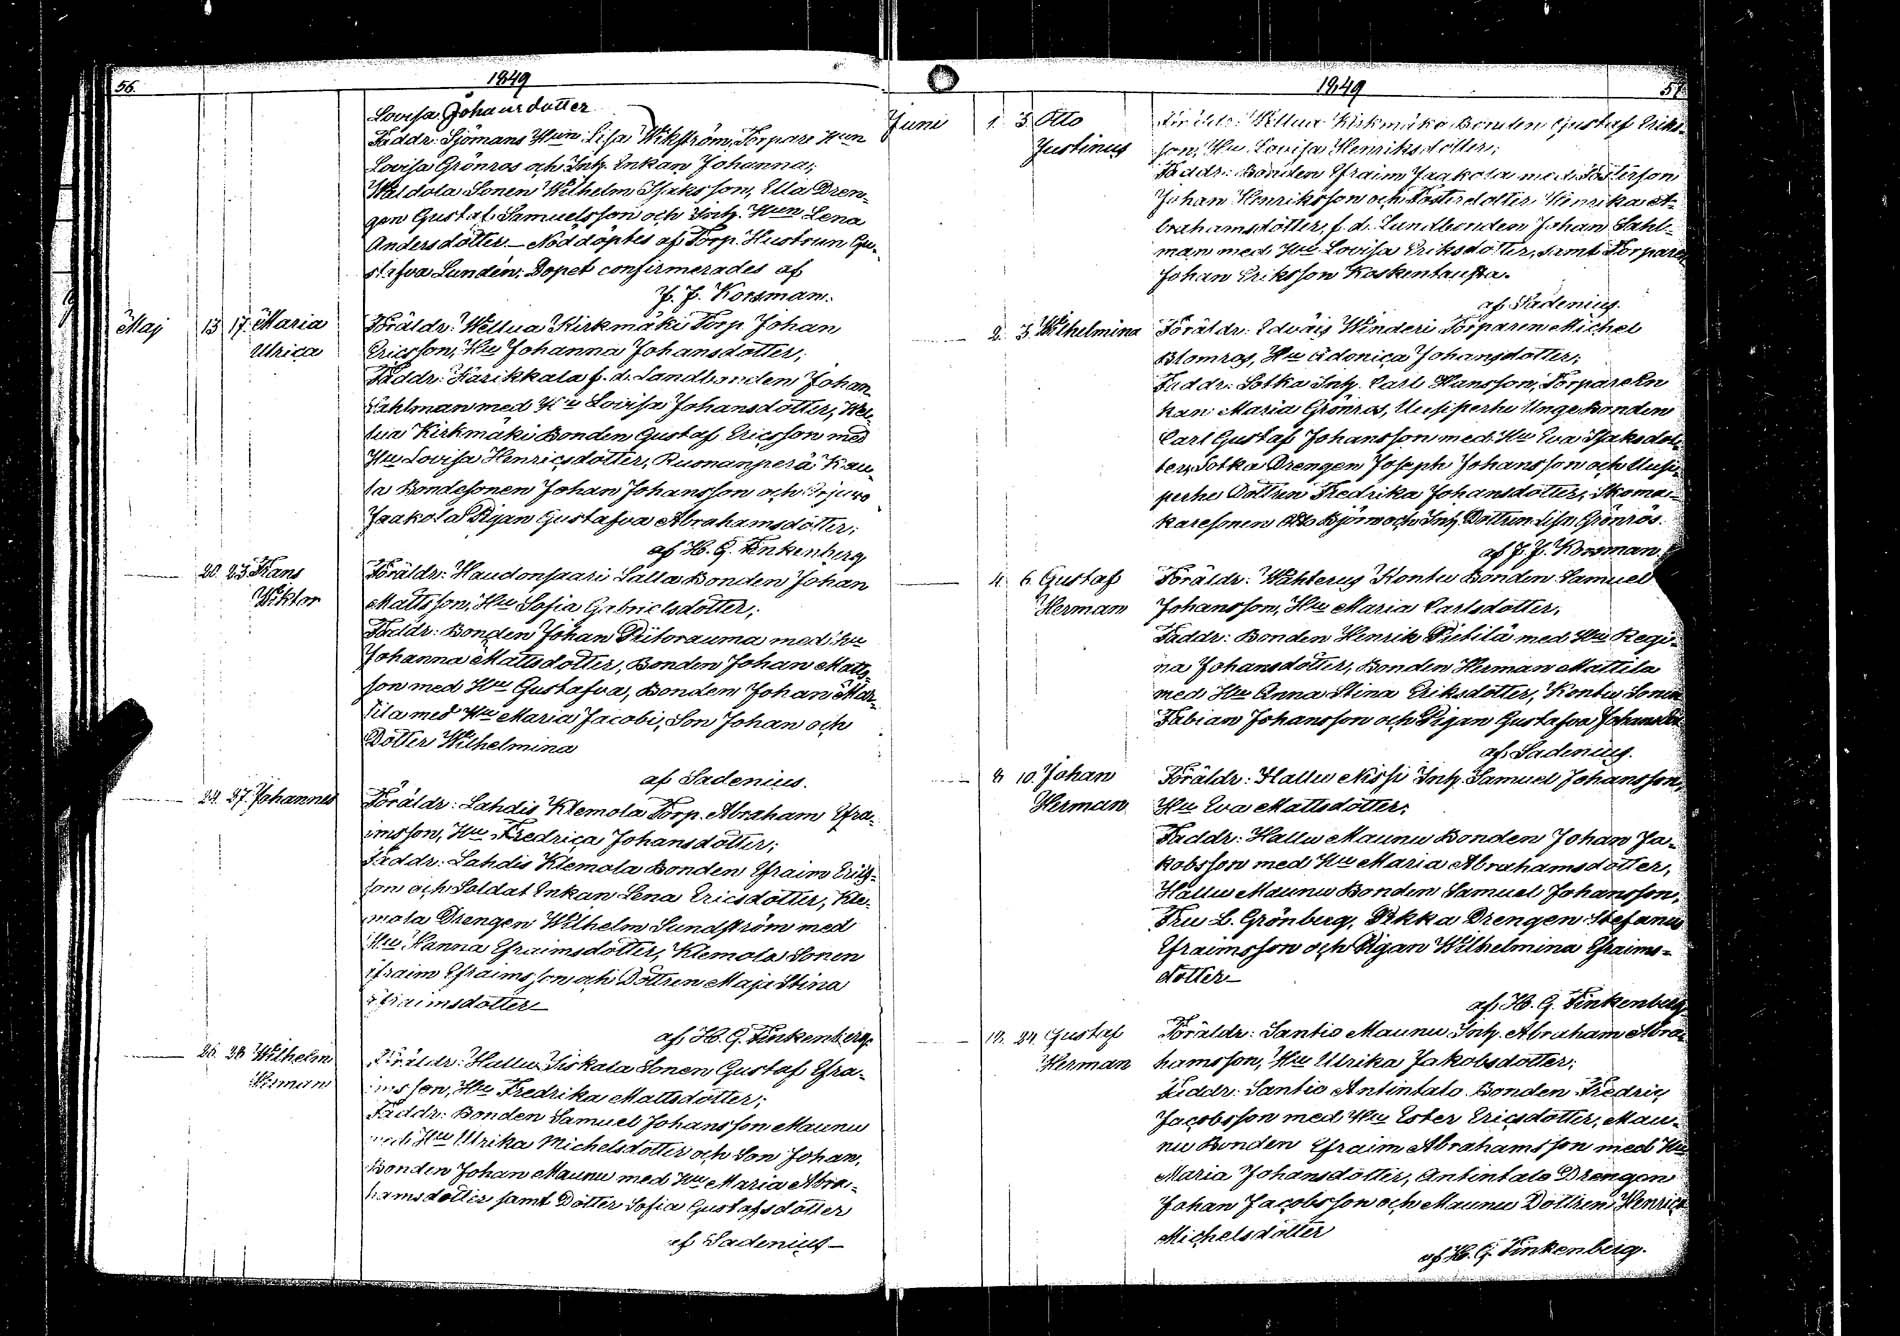 56.
1849
Lovisa Johansdotter
Faddr: Sjömans Hun Lisa Wikström, Torpare Hun
Lovisa Grönros och Inh. Enkan Johanna;
Waldola Sonen Wilhelm Isaksson, Ella Dren-
gen Gustaf Samuelsson och Inh. Hun Lena
Andersdotter – Nöddöptes af Torp. Hustrun Gu-
stafva Lundén. Dopet confirmerades af
J. J. Korsman.
Maj 13 17. Maria
Ulrica
Föräldr: Wellua Kirkmäki Torp. Johan
Ericsson, Hu Johanna Johansdotter;
Faddr: Karikkala f.d. Landbonden Johan
Sahlman med Hu Lovisa Johansdotter, Wel-
lua Kirkmäki Bonden Gustaf Ericsson med
Hu Lovisa Henricsdotter, Ruonanperä Kau-
la Bondesonen Johan Johansson och
Jaakola Pigan Gustafva Abrahamsdotter;
af H. G. Finkenberg
20. 23. Frans
Wiktor
Föräldr: Haudonsaari Salla Bonden Johan
Mattsson, Hu Sofia Gabrielsdotter;
Faddr: Bonden Johan Piitorauma med Hu
Johanna Mattsdotter, Bonden Johan Matts-
son med Hu Gustafva, Bonden Johan Mar-
tila med Hu Maria Jacobi, Son Johan och
Dotter Wilhelmina
af Sadenius.
24. 27. Johannes
Föräldr: Lahdis Klemola Torp. Abraham Efra-
imsson, Hu Fredrica Johansdotter;
Faddr: Lahdis Klemola Bonden Efraim Erics-
son och Soldat Enkan Lena Ericsdotter, Kle-
mola Drengen Wilhelm Sundström med
Hu Hanna Efraimsdotter, Klemola Sonen
Efraim Efraimsson och Dottren Maja Stina
Efraimsdotter –
af H. G. Finkenberg.
26. 28. Wilhelm
Herman
Föräldr: Hallu Yiskala Sonen Gustaf Efra-
imsson, Hu Fredrika Mattsdotter;
Faddr: Bonden Samuel Johansson Maunu
med Hu Ulrika Michelsdotter och Son Johan,
Bonden Johan Maunu med Hu Maria Abra-
hamsdotter samt Dotter Sofia Gustafsdotter
af Sadenius –
1849
57
Juni 1. 3. Otto
Justinus
Föräldr: Wellua Kirkmäki Bonden Gustaf Eriks-
son, Hu Lovisa Henriksdotter;
Faddr: Bonden Efraim Jaakola med Fosterson
Johan Henriksson och Fosterdotter Henrika A-
brahamsdotter, f.d. Landbonden Johan Sahl-
man med Hu Lovisa Eriksdotter, samt Torparen
Johan Eriksson Koskentausta.
af Sadenius.
2. 3. Wilhelmina
Föräldr: Edväis Winderi Torparen Michel
Blomros, Hu Adonica Johansdotter;
Faddr: Sotka Inh. Carl Hansson, Torpare En
kan Maria Grönros, Uusiperhe Unge Bonden
Carl Gustaf Johansson med Hu Eva Isaksdot-
ter, Sotka Drengen Joseph Johansson och Uusi-
perhe Dottren Fredrika Johansdotter, Skoma-
karesonen Otto Björn och Inh. Dottren Lisa Grönrös.
af J. J. Korsman.
4. 6. Gustaf
Herman
Föräldr: Wähterus Kontu Bonden Samuel
Johansson, Hu Maria Carlsdotter,
Faddr: Bonden Henrik Pietilä med Hu Regi-
na Johansdotter, Bonden Herman Mattila
med Hu Anna Stina Eriksdotter, Kontu Sonen
Fabian Johansson och Pigan Gustafva Johansdot
af Sadenius.
8. 10. Johan
Herman.
Föräldr: Hallu Nissi Inh. Samuel Johansson,
Hu Eva Mattsdotter;
Faddr: Hallu Maunu Bonden Johan Ja-
kobsson med Hu Maria Abrahamsdotter,
Hallu Maunu Bonden Samuel Johansson,
Fru L. Grönberg, Pikka Drengen Stefanus
Efraimsson och Pigan Wilhelmina Efraims-
dotter –
af H. G. Finkenberg
24. Gustaf
Herman
Föräldr: Santio Maunu Inh. Abraham Abra-
hamsson, Hu Ulrika Jakobsdotter;
Faddr: Santio Antintalo Bonden Fredric
Jacobsson med Hu Ester Ericsdotter, Mau-
nu Bonden Efraim Abrahamsson med Hu
Maria Johansdotter, Antintalo Drengen
Johan Jacobsson och Maunu Dottren Henrica
Michelsdotter
af H. G. Finkenberg.